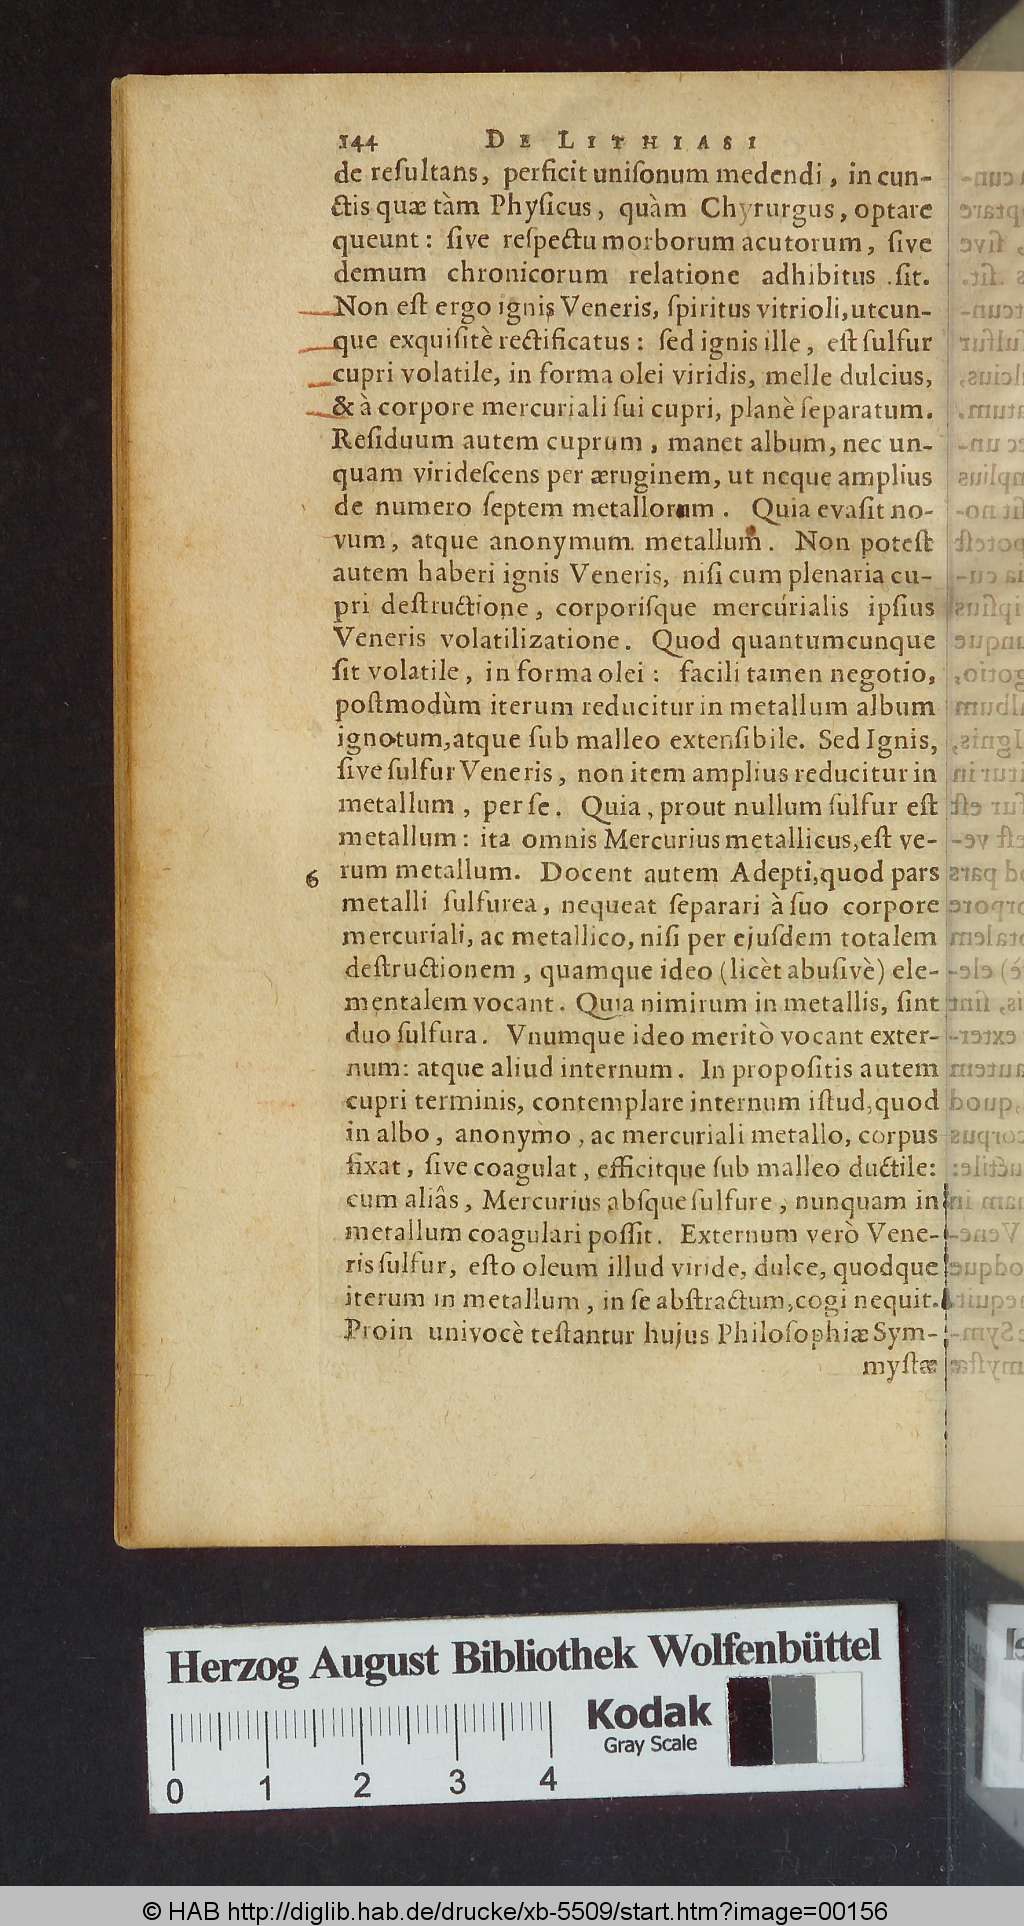 144 DE LITHIASI
de reſultans, perficit uniſonum medendi, in cun-
ctis quæ tàm Phyſicus, quàm Chyrurgus, optare
queunt: ſive reſpectu morborum acutorum, ſive
demum chronicorum relatione adhibitus ſit.
Non eſt ergo ignis Veneris, ſpiritus vitrioli, utcun-
que exquiſitè rectificatus: ſed ignis ille, eſt ſulfur
cupri volatile, in forma olei viridis, melle dulcius,
& à corpore mercuriali ſui cupri, planè ſeparatum.
Reſiduum autem cuprum, manet album, nec un-
quam virideſcens per æruginem, ut neque amplius
de numero ſeptem metallorum. Quia evaſit no-
vum, atque anonymum metallum. Non poteſt
autem haberi ignis Veneris, niſi cum plenaria cu-
pri deſtructione, corporiſque mercurialis ipſius
Veneris volatilizatione. Quod quantumcunque
ſit volatile, in forma olei: facili tamen negotio,
poſtmodùm iterum reducitur in metallum album
ignotum, atque ſub malleo extenſibile. Sed Ignis,
ſive ſulfur Veneris, non item amplius reducitur in
metallum, per ſe. Quia, prout nullum ſulfur eſt
metallum: ita omnis Mercurius metallicus, eſt ve-
6 rum metallum. Docent autem Adepti, quod pars
metalli ſulfurea, nequeat ſeparari à ſuo corpore
mercuriali, ac metallico, niſi per ejuſdem totalem
deſtructionem, quamque ideo (licèt abuſivè) ele-
mentalem vocant. Quia nimirum in metallis, ſint
duo ſulfura. Vnumque ideo meritò vocant exter-
num: atque aliud internum. In propoſitis autem
cupri terminis, contemplare internum iſtud, quod
in albo, anonymo, ac mercuriali metallo, corpus
fixat, ſive coagulat, efficitque ſub malleo ductile:
cum aliâs, Mercurius abſque ſulfure, nunquam in
metallum coagulari poſſit. Externum verò Vene-
ris ſulfur, eſto oleum illud viride, dulce, quodque
iterum in metallum, in ſe abſtractum, cogi nequit.
Proin univocè teſtantur hujus Philoſophiæ Sym-
myſtæ
Herzog August Bibliothek Wolfenbüttel
Kodak
Gray Scale
0 1 2 3 4
© HAB http://diglib.hab.de/drucke/xb-5509/start.htm?image=00156